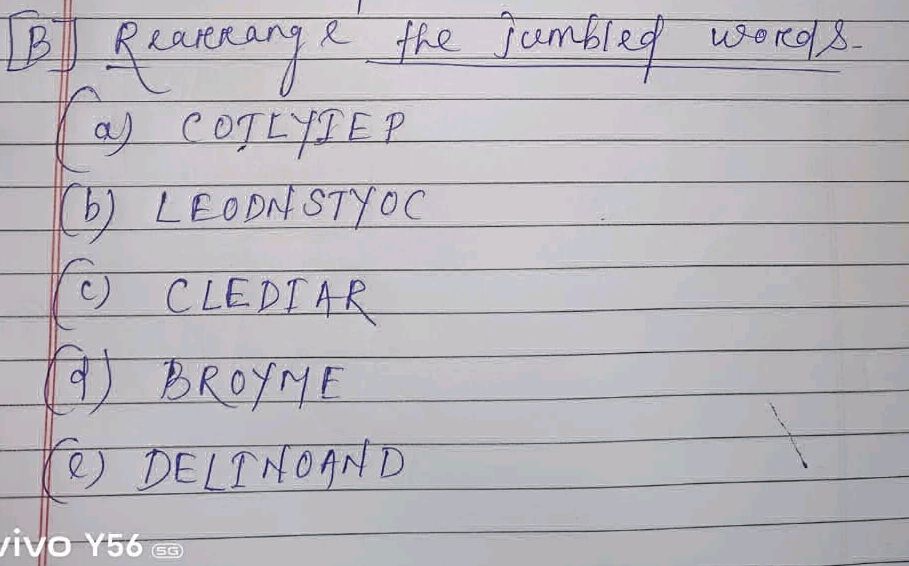 [B] Rearrange the jumbled words-
(a) COTLYIEP
(b) LEODNSTYOC
(c) CLEDIAR
(d) BROYME
(e) DELINOAND
vivo Y56 5G